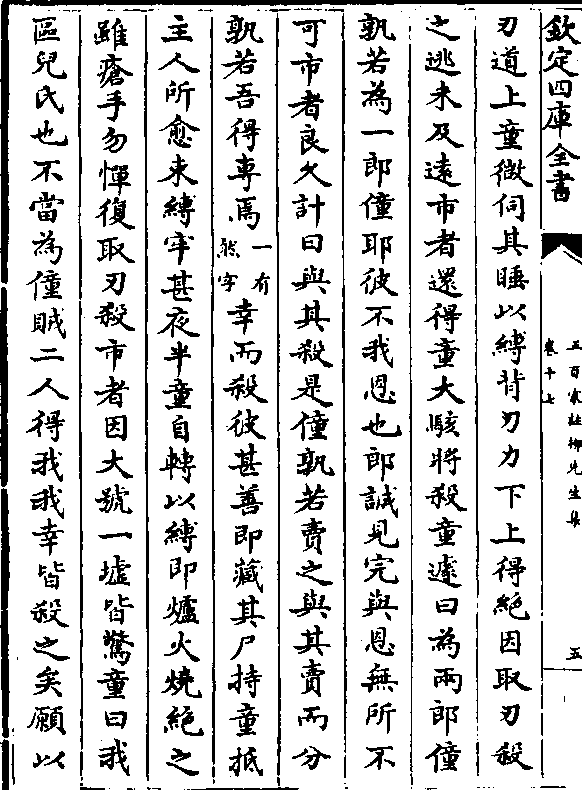 欽定四庫全書
五百家註柳先生集
卷十七
五
刃道上童微伺其睡以縛背刃力下上得絶因取刃殺
之逃未及逺市者還得童大駭將殺童遽曰為兩郎僮
孰若為一郎僮耶彼不我恩也郎誠見完與恩無所不
可市者良久計曰與其殺是僮孰若賣之與其賣而分
孰若吾得專焉一有然字幸而殺彼甚善即藏其尸持童抵
主人所愈束縛牢甚夜半童自轉以縛即爐火燒絶之
雖瘡手勿憚復取刃殺市者因大號一墟皆驚童曰我
區兒氏也不當為僮賊二人得我我幸皆殺之矣願以